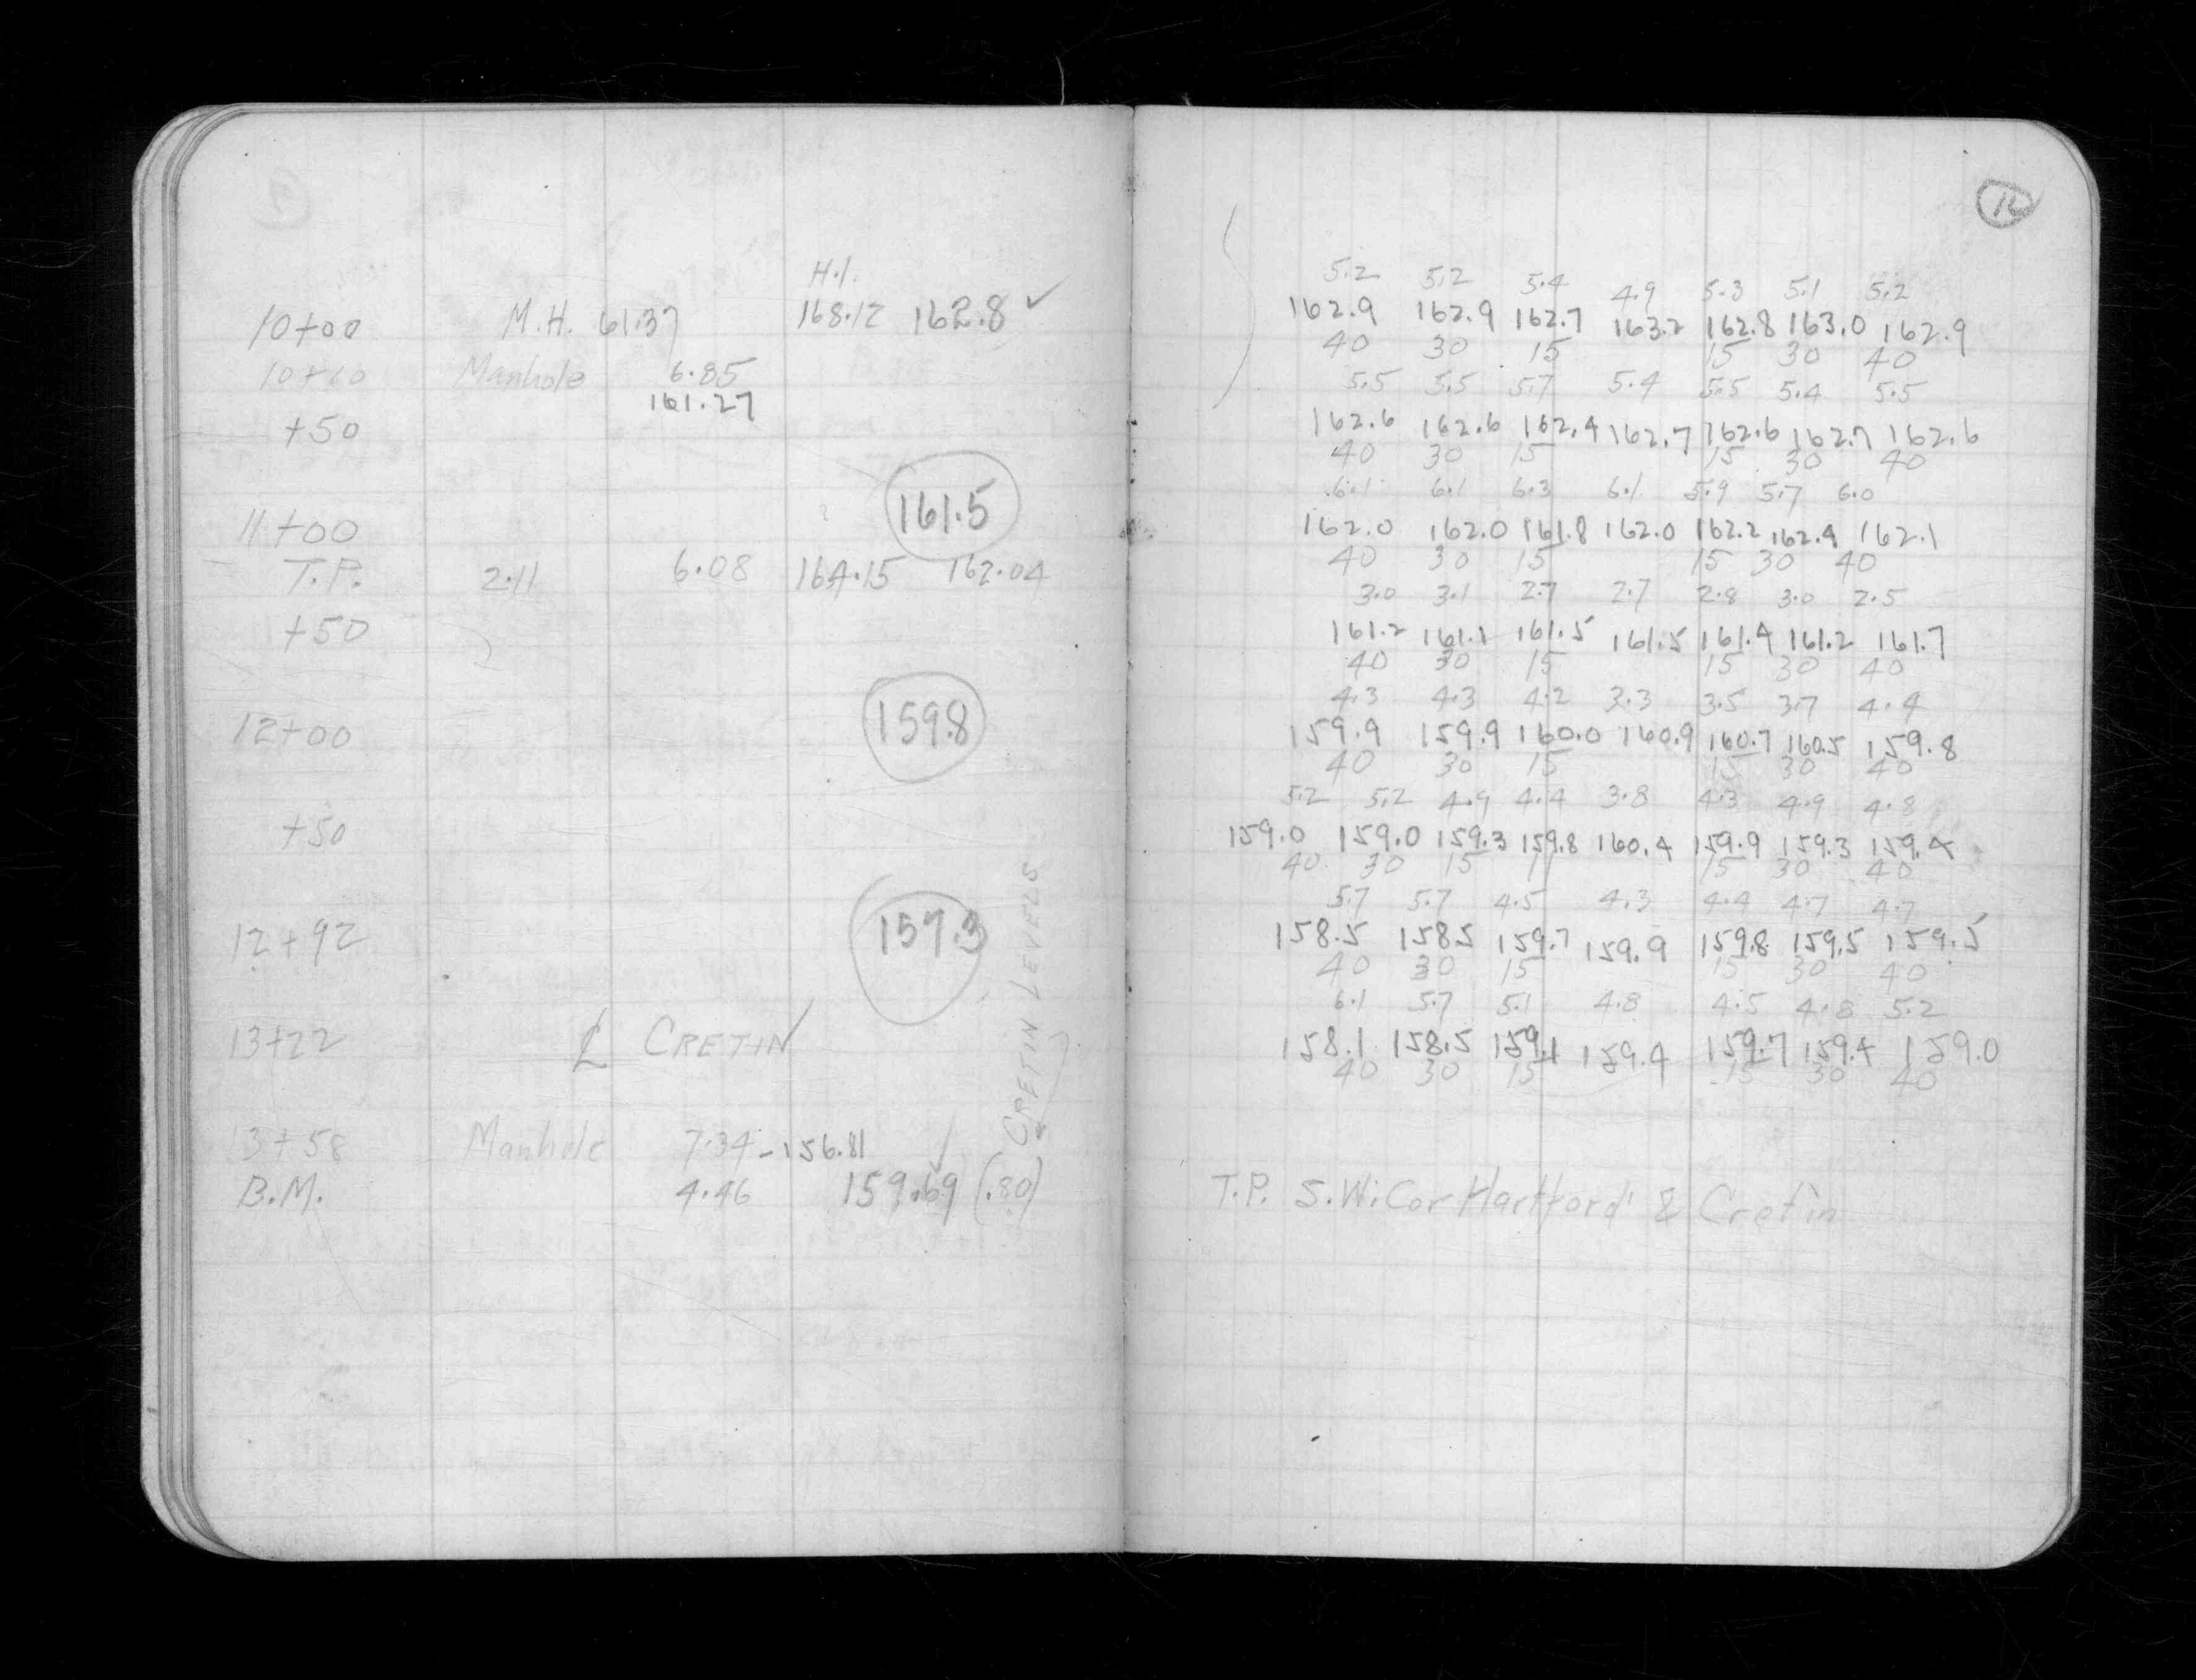 H.I.
10+00 M.H. 61.37 168.12 162.8 ✓
Manhole 6.85
161.27
+50
161.5
11+00
T.P. 2.11 6.08 164.15 162.04
+50
159.8
12+00
+50
157.3
12+92
CRETIN LEVELS
13+22 ℄ CRETIN
13+58 Manhole 7.34 - 156.81
B.M. 4.46 159.69 (.80)
10
5.2 5.2 5.4 4.9 5.3 5.1 5.2
162.9 162.9 162.7 163.2 162.8 163.0 162.9
40 30 15 15 30 40
5.5 5.5 5.7 5.4 5.5 5.4 5.5
162.6 162.6 162.4 162.7 162.6 162.7 162.6
40 30 15 15 30 40
6.1 6.1 6.3 6.1 5.9 5.7 6.0
162.0 162.0 161.8 162.0 162.2 162.4 162.1
40 30 15 15 30 40
3.0 3.1 2.7 2.7 2.8 3.0 2.5
161.2 161.1 161.5 161.5 161.4 161.2 161.7
40 30 15 15 30 40
4.3 4.3 4.2 3.3 3.5 3.7 4.4
159.9 159.9 160.0 160.9 160.7 160.5 159.8
40 30 15 15 30 40
5.2 5.2 4.9 4.4 3.8 4.3 4.9 4.8
159.0 159.0 159.3 159.8 160.4 159.9 159.3 159.4
40 30 15 11 15 30 40
5.7 5.7 4.5 4.3 4.4 4.7 4.7
158.5 158.5 159.7 159.9 159.8 159.5 159.5
40 30 15 15 30 40
6.1 5.7 5.1 4.8 4.5 4.8 5.2
158.1 158.5 159.1 159.4 159.7 159.4 159.0
40 30 15 15 30 40
T.P. S.W. Cor Hartford & Cretin